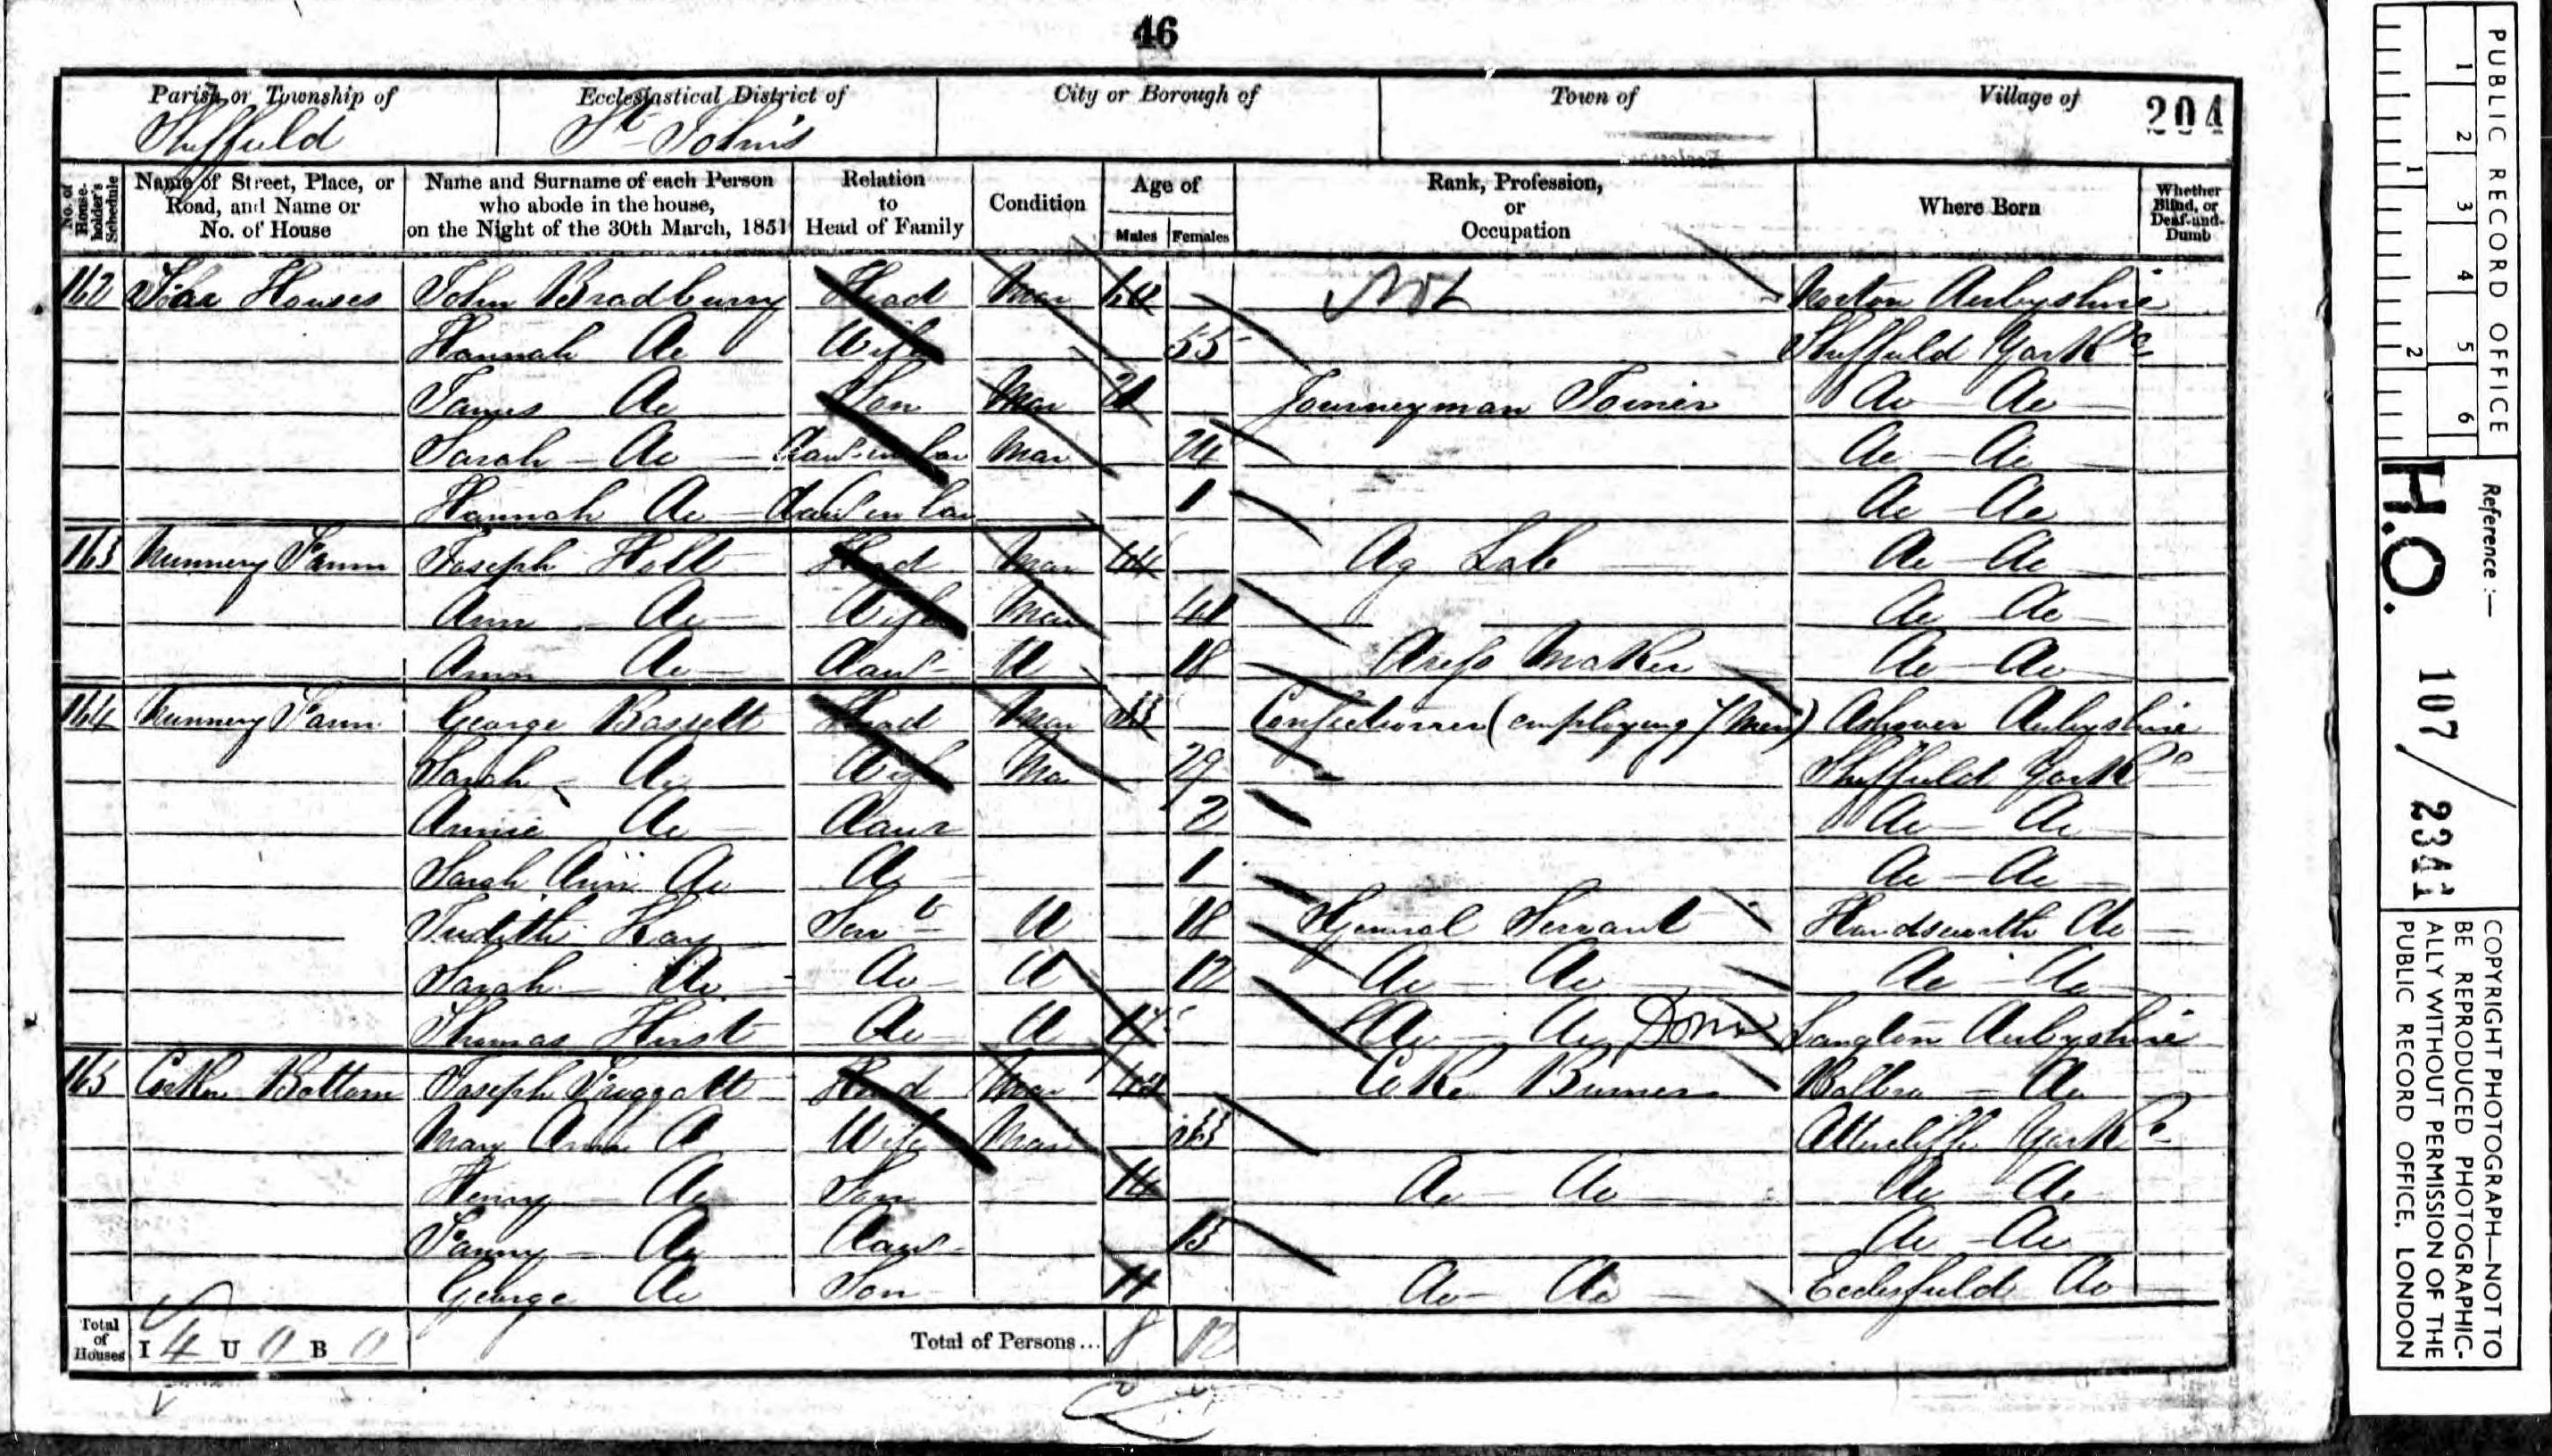 46
Parish or Township of Ecclesiastical District of City or Borough of Town of Village of 204
Sheffield St Johns
No. of House-holder's Schedule Name of Street, Place, or Road, and Name or No. of House Name and Surname of each Person who abode in the house, on the Night of the 30th March, 1851 Relation to Head of Family Condition Age of Males Females Rank, Profession, or Occupation Where Born Whether Blind, or Deaf-and-Dumb
162 Houses John Bradbury Head Mar Norton Derbyshire
Hannah Do Wife 55 Sheffield York
James Do Son Mar Journeyman Joiner Do Do
Sarah Do Daur in law Mar 24 Do Do
Hannah Do Daur in law 1 Do Do
163 Nunnery Farm Joseph Holt Head Mar 44 Ag Lab Do Do
Ann Do Wife Mar Do Do
Ann Do Daur U 18 Dress Maker Do Do
164 Nunnery Farm George Bassett Head Mar 33 Confectioner (employing 7 Men) Ashover Derbyshire
Sarah Do Wife Mar 29 Sheffield York
Annie Do Daur 2 Do Do
Sarah Ann Do Do 1 Do Do
Judith Kay Servt U 18 General Servant Handsworth Do
Sarah Do Do U 12 Do Do Do Do
Thomas Hirst Do U Do Do Dom Derbyshire
165 Bottom Joseph Froggatt Head Mar Coke Burner Do
Mary Ann D Wife Mar 33 Attercliffe York
Henry Do Son 14 Do Do Do Do
Fanny Do Daur 13 Do Do
George Do Son 11 Do Do Ecclesfield Do
Total of Houses I 4 U 0 B 0 Total of Persons... 8 12
PUBLIC RECORD OFFICE
1 2 3 4 5 6
1 2
Reference :—
H.O. 107/2341
COPYRIGHT PHOTOGRAPH—NOT TO
BE REPRODUCED PHOTOGRAPHIC-
ALLY WITHOUT PERMISSION OF THE
PUBLIC RECORD OFFICE, LONDON